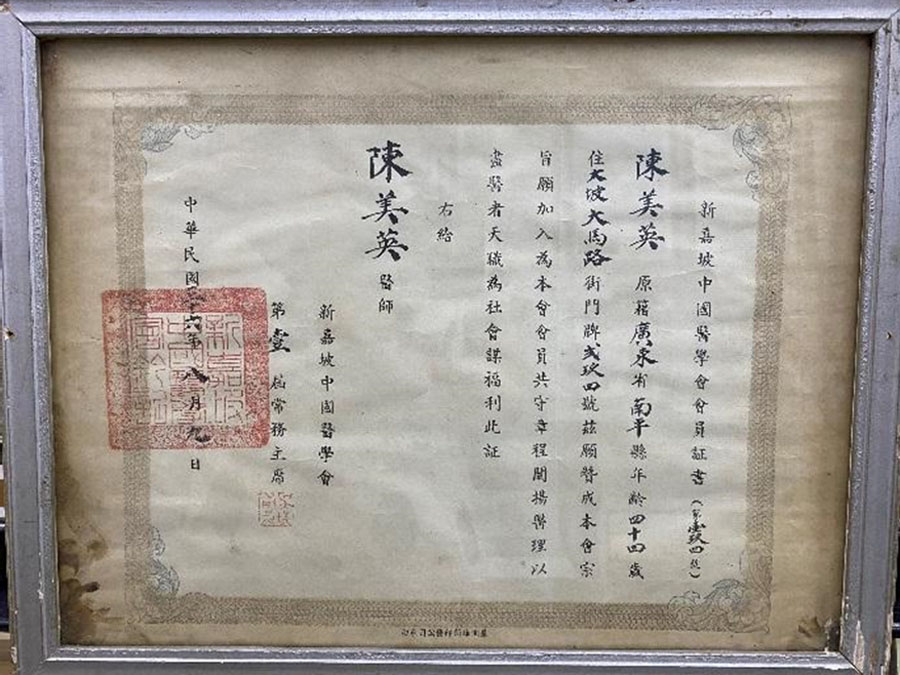 新嘉坡中國醫學會會員証書（第壹玖四號）
陳美英 原籍廣東省南平縣年齡四十四歲
住大坡大馬路街門牌貳玖四號茲願贊成本會宗
旨願加入為本會會員共守章程闡揚醫理以
盡醫者天職為社會謀福利此証
右給
陳美英醫師
新嘉坡中國醫學會
第壹屆常務主席
中華民國三十六年八月九日